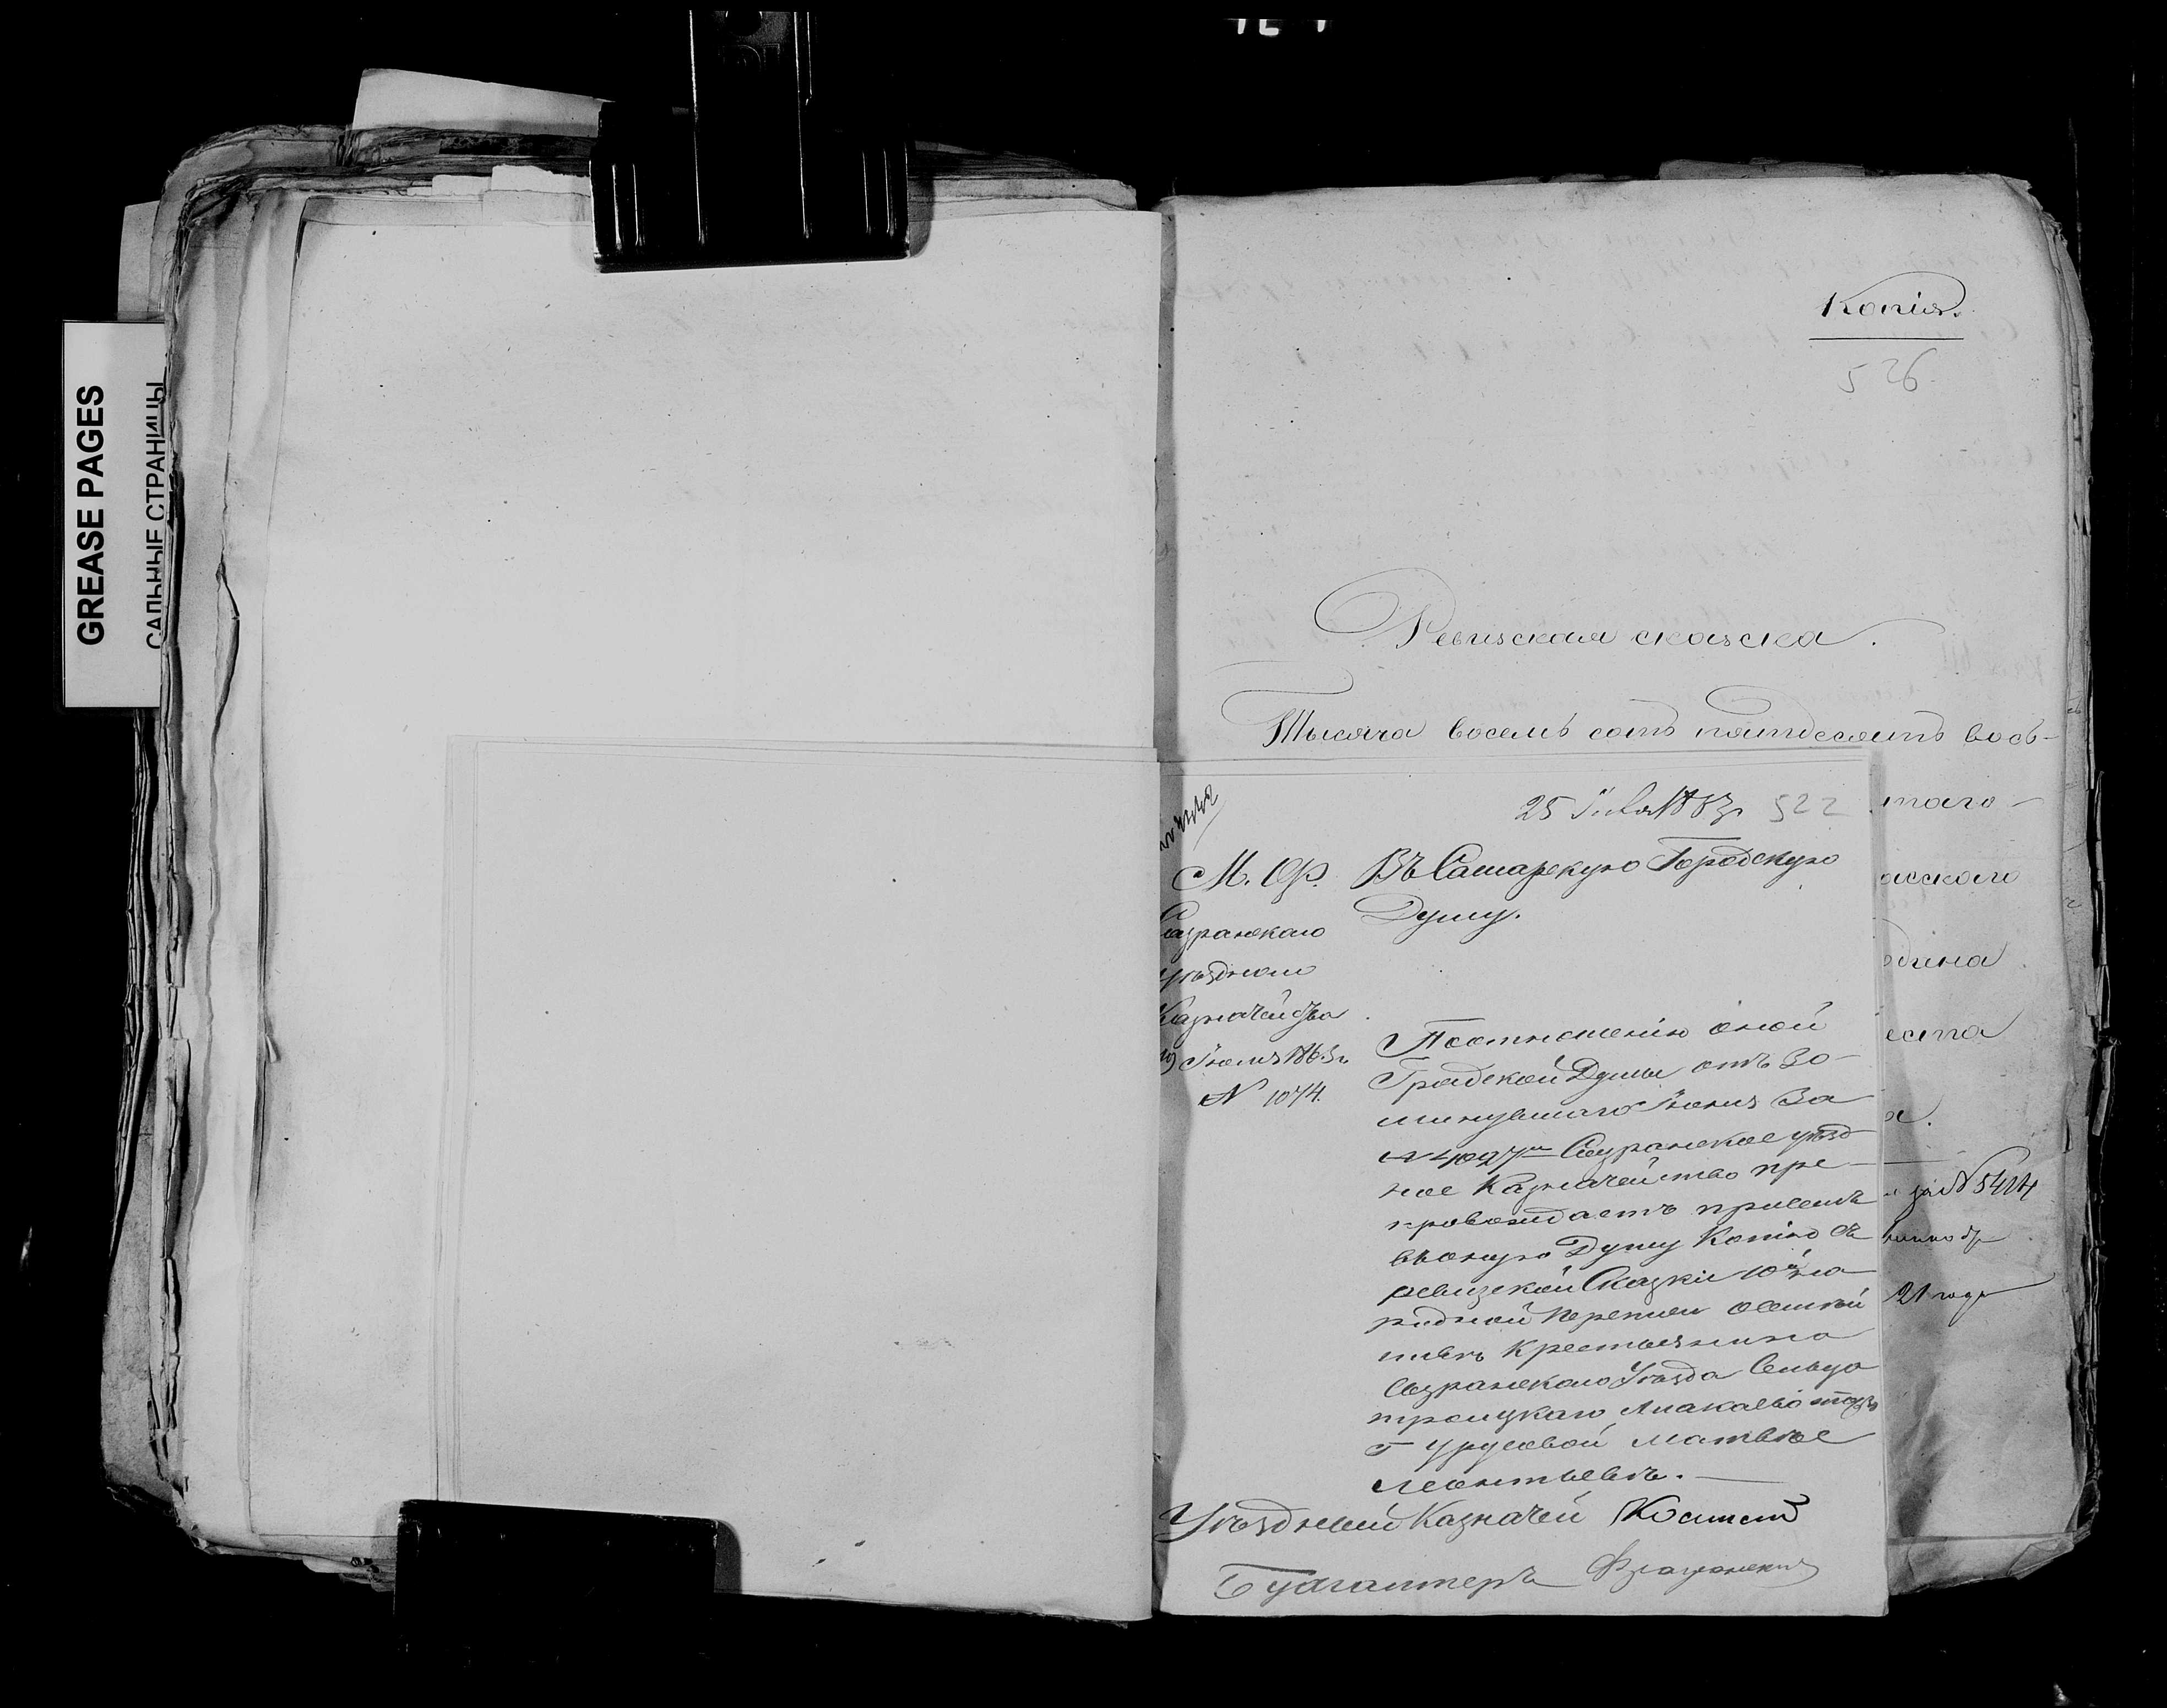 GREASE PAGES
САЛЬНЫЕ СТРАНИЦЫ
Копія.
526
Ревизская сказка.
Тысяча восемь сотъ пятдесятъ вось-
таго
одина
еста
за № 5414
21 года
25 Іюля 1863 г. 522
М. Ф.
Сызранскаго
Уѣзднаго
Казначейства
Іюля 1863 г.
№ 1074.
Въ Самарскую Городскую
Думу.
По отношенію оной
Градской Думы отъ 30
минувшаго Іюня за
№ 4097 Сызранское уѣзд
ное Казначейство пре-
провождаетъ при семъ
въ оную Думу Копію съ
ревизской Сказки 10й на
родной переписи о семей
ствѣ крестьянина
Сызранскаго Уѣзда Сельца
Троицкаго Анакаево тожъ
Г. Урусовой Матвѣе
Леонтьевѣ.
Уѣздный Казначей
Бухгалтеръ